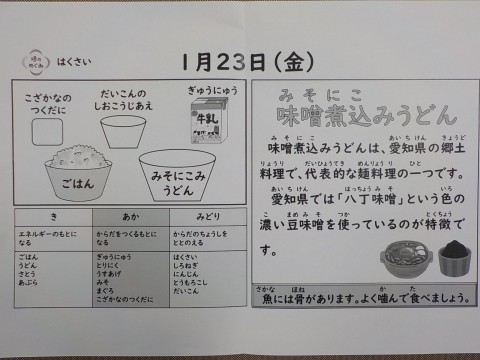 旬の
めぐみ
はくさい
1月23日(金)
こざかなの
つくだに
だいこんの
しおこうじあえ
ぎゅうにゅう
牛乳
ごはん
みそにこみ
うどん
き
あか
みどり
エネルギーのもとに
なる
からだをつくるもとに
なる
からだのちょうしを
ととのえる
ごはん
うどん
さとう
あぶら
ぎゅうにゅう
とりにく
うすあげ
みそ
まぐろ
こざかなのつくだに
はくさい
しろねぎ
にんじん
とうもろこし
だいこん
みそにこ
味噌煮込みうどん
みそにこ あいちけん きょうど
味噌煮込みうどんは、愛知県の郷土
りょうり だいひょうてき めんりょうり ひと
料理で、代表的な麺料理の一つです。
あいちけん はっちょうみそ いろ
愛知県では「八丁味噌」という色の
こ まめみそ つか とくちょう
濃い豆味噌を使っているのが特徴で
す。
さかな ほね か た
魚には骨があります。よく噛んで食べましょう。